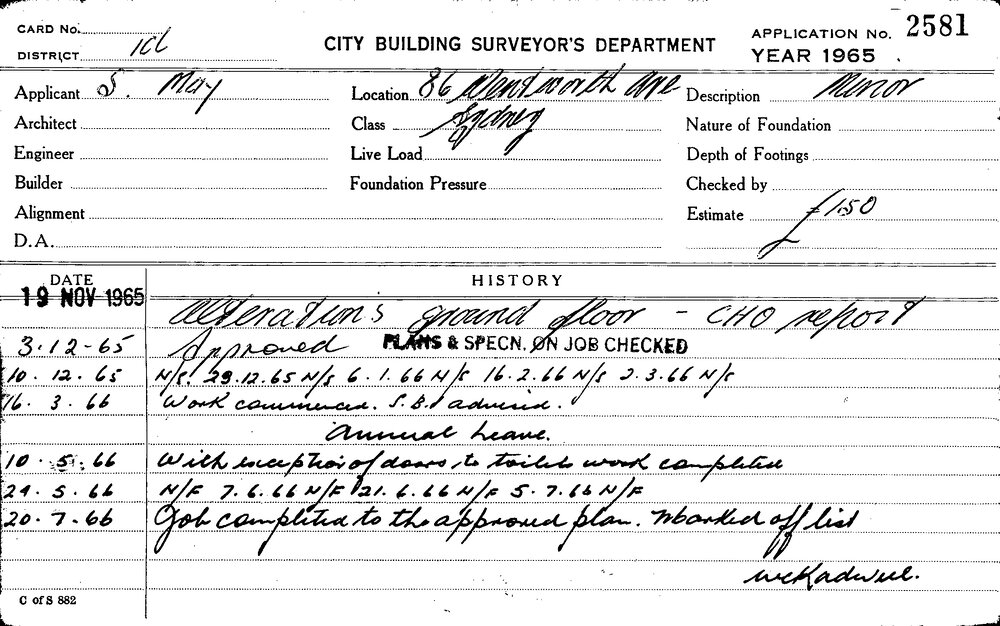 CARD No.
DISTRICT
CITY BUILDING SURVEYOR'S DEPARTMENT
APPLICATION No. 2581
YEAR 1965
Applicant S. May
Location 86 Wentworth Ave
Description Minor
Architect
Class Sydney
Nature of Foundation
Engineer
Live Load
Depth of Footings
Builder
Foundation Pressure
Checked by
Alignment
Estimate £150
D.A.
DATE
HISTORY
19 NOV 1965 Alteration's ground floor - CHO report
3.12-65 Approved PLANS & SPECN. ON JOB CHECKED
10.12.65 N/S. 29.12.65 N/S 6.1.66 N/S 16.2.66 N/S 2.3.66 N/S
16.3.66 Work commenced. S.B. advised.
Annual Leave.
10.5.66 With exception of doors to toilets work completed
24.5.66 N/F 7.6.66 N/F 21.6.66 N/F 5.7.66 N/F
20.7.66 Job completed to the approved plan. Marked off list
C of S 882